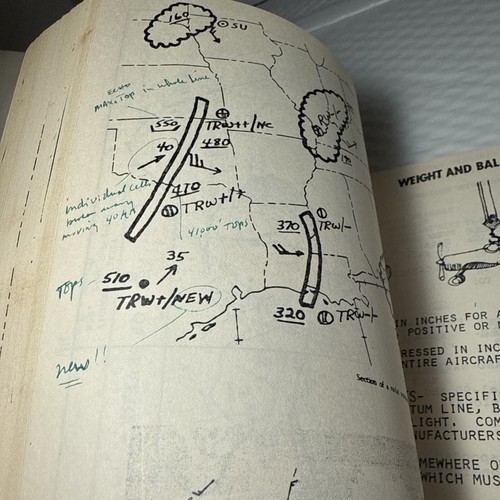 160
SU
ECHO
MAX TOP in whole line
550
TRW++/NC
40
480
individual cells
moving 40 kt
410
TRW+/+
41000' TOPS
370
TRW/-
35
TOPS - 510
TRW+/NEW
320
TRW-/-
new!!
Section of a
WEIGHT AND BAL
IN INCHES FOR A
POSITIVE OR
RESSED IN INC
NTIRE AIRCRAF
S- SPECIFI
TUM LINE, B
LIGHT. COM
NUFACTURERS
MEWHERE O
WHICH MUS